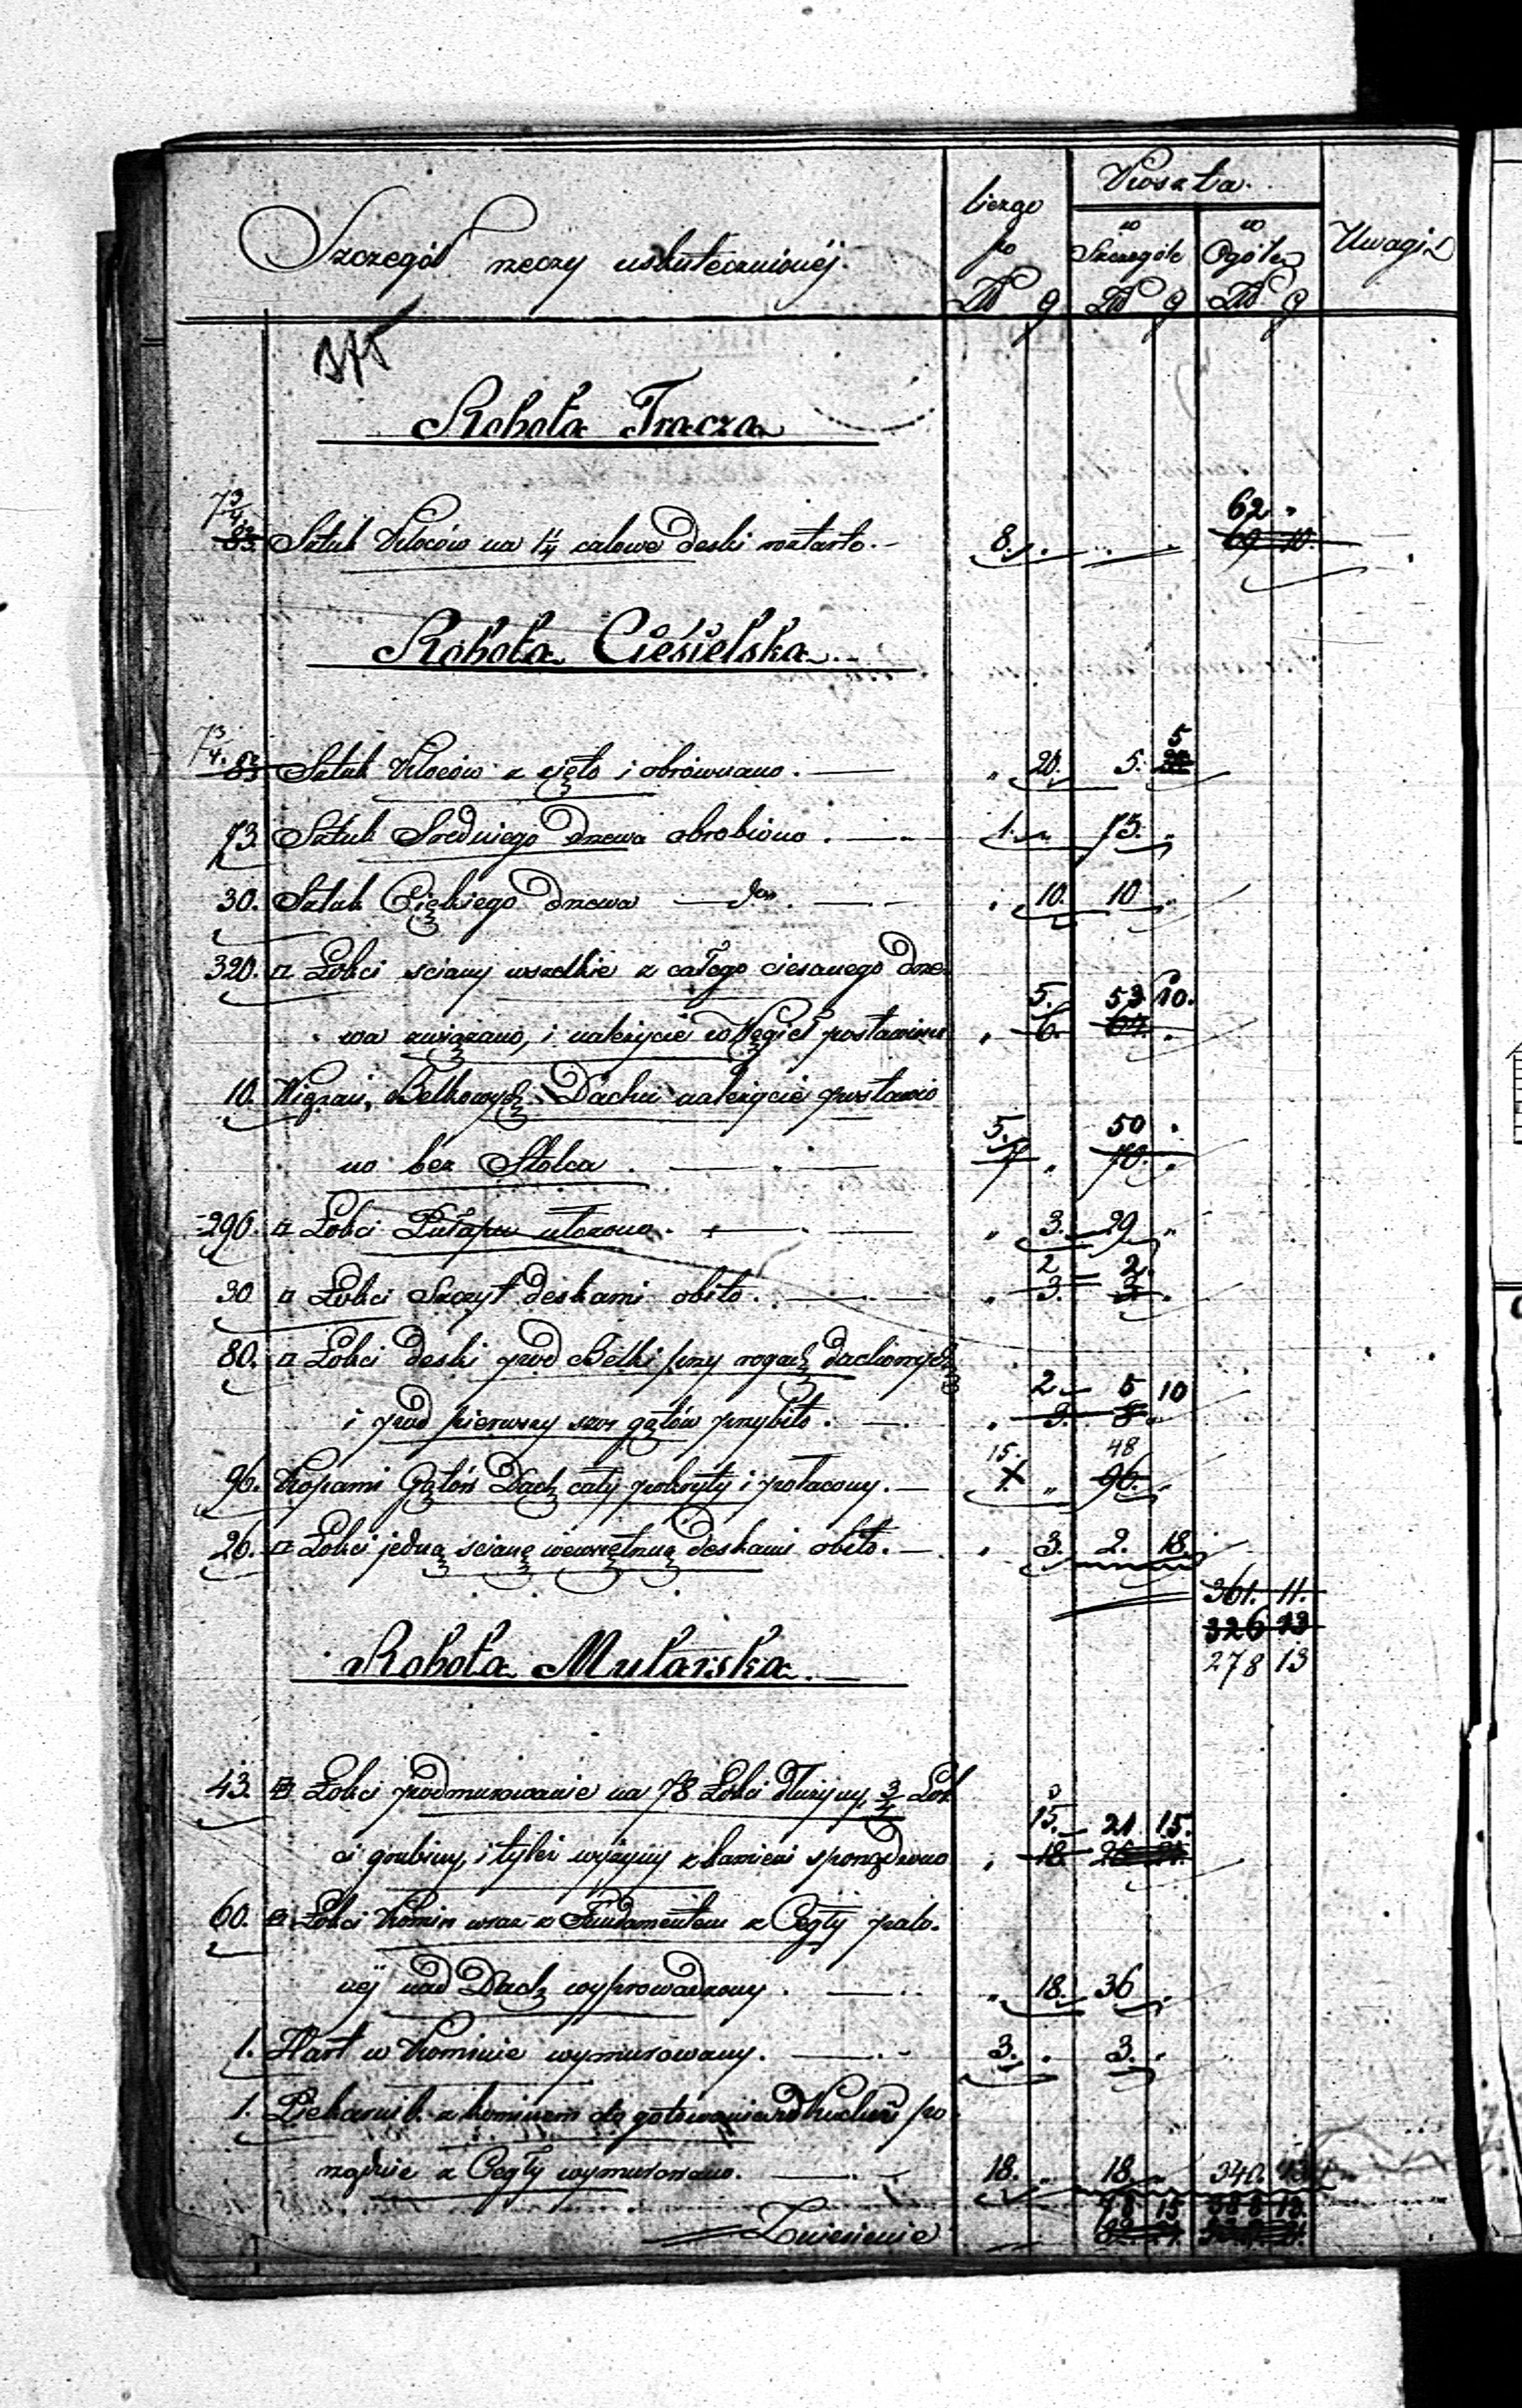 Szczegół rzeczy uskutecznionéj.
liczgo po Zł g
Koszta.
w Szczególe Zł g
w Ogóle Zł g
Uwagi
375
Robota Tracza
7 3/4 62 "
83. Sztuk Kloców na 1 1/4 calowe deski roztarto. 8. 69 10.
Robota Ciesielska
7 3/4. 5
83 Sztuk Kloców z cięto i obrównano. " 20. 5.
73. Sztuk Sredniego drzewa obrobiono. 1. " 73. "
30. Sztuk Cięłkiego drzewa do. " 10. 10 "
320. □ Łokci sciany wszelkie z całego ciesanego drze
5. 53 10.
wa związano, i należycie w Węgieł postawiono " 6. 64. "
10. Wiązań, Belkowych Dachu należycie postawio
5. 50 "
no bez Stolca. 7 " 70. "
290. □ Łokci Pułapu ułozono. " 3. 29 "
2 2.
30 □ Łokci Szczyt deskami obito. " 3. 3 "
80. □ Łokci deski pod Belki przy rogach dachowych
2. 5 10
i pod pierwszy szor gątów przybito. " 3. 8 "
15. 48
96. Kopami Gątów Dach cały pokryty i połacony. 1. " 96. "
26. □ Łokci jedną scianę wewnętrzną deskami obito. " 3. 2. 18.
361. 11.
326 13
278 13
Robota Mularska.
43. Łokci podmurowanie na 78 Łokci dłużyny, 3/4 Łok
15. 21 15.
ci grubiny, i tyleż wyżyny z kamieni sporządzono " 18.
60. Łokci Komin wraz z Fundamentem z Cegły palo.
néj nad Dach wyprowadzony. " 18. 36 "
1. Hart w Kominie wymurowany. 3. " 3. "
1. Piekarnik z kominem do gotowania w Kuchni po
rządnie z Cegły wymurowano. 18. " 18. " 340. 13
78 15 388 13.
Zniesienie